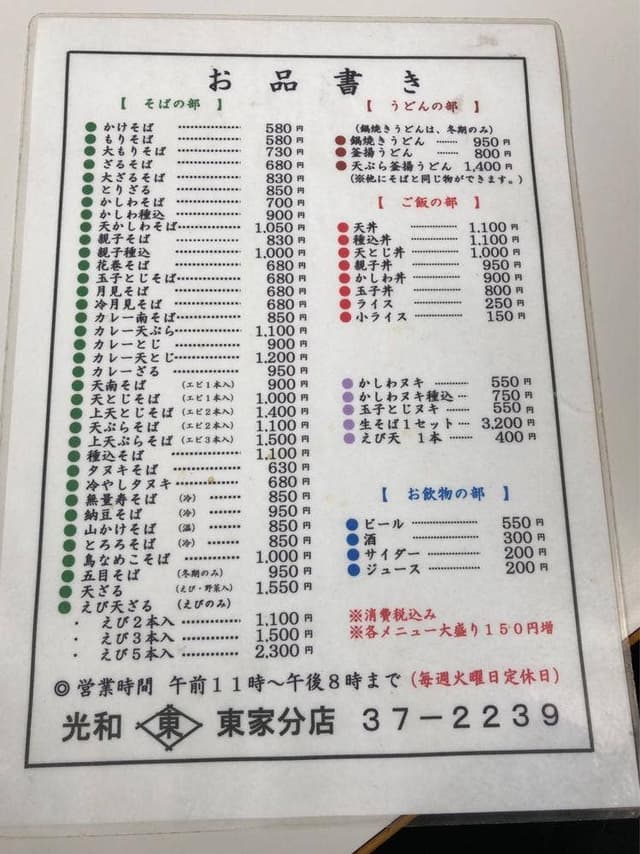 お品書き
【 そばの部 】
かけそば ………… 580円
もりそば ………… 580円
大もりそば ………… 730円
ざるそば ………… 680円
大ざるそば ………… 830円
とりざる ………… 850円
かしわそば ………… 700円
かしわ種込 ………… 900円
天かしわそば ………… 1,050円
親子そば ………… 830円
親子種込 ………… 1,000円
花巻そば ………… 680円
玉子とじそば ………… 680円
月見そば ………… 680円
冷月見そば ………… 680円
カレー南そば ………… 850円
カレー天ぷら ………… 1,100円
カレーとじ ………… 900円
カレー天とじ ………… 1,200円
カレーざる ………… 950円
天南そば (エビ1本入) 900円
天とじそば (エビ1本入) 1,000円
上天とじそば (エビ2本入) 1,400円
天ぷらそば (エビ2本入) 1,100円
上天ぷらそば (エビ3本入) 1,500円
種込そば ………… 1,100円
タヌキそば ………… 630円
冷やしタヌキ ………… 680円
無量寿そば (冷) ……… 850円
納豆そば (冷) ……… 950円
山かけそば (温) ……… 850円
とろろそば (冷) ……… 850円
鳥なめこそば ………… 1,000円
五目そば (冬期のみ) 950円
天ざる (えび・野菜入) 1,550円
えび天ざる (えびのみ)
・ えび2本入 ………… 1,100円
・ えび3本入 ………… 1,500円
・ えび5本入 ………… 2,300円
【 うどんの部 】
(鍋焼きうどんは、冬期のみ)
鍋焼きうどん …… 950円
釜揚うどん ……… 800円
天ぷら釜揚うどん 1,400円
(※他にそばと同じ物ができます。)
【 ご飯の部 】
天丼 ………… 1,100円
種込丼 ………… 1,100円
天とじ丼 ………… 1,000円
親子丼 ………… 950円
かしわ丼 ………… 900円
玉子丼 ………… 800円
ライス ………… 250円
小ライス ………… 150円
かしわヌキ ………… 550円
かしわヌキ種込 … 750円
玉子とじヌキ …… 550円
生そば1セット …… 3,200円
えび天 1本 …… 400円
【 お飲物の部 】
ビール ………… 550円
酒 ………… 300円
サイダー ………… 200円
ジュース ………… 200円
※消費税込み
※各メニュー大盛り150円増
◎営業時間 午前11時～午後8時まで(毎週火曜日定休日)
光和 東 東家分店 37-2239